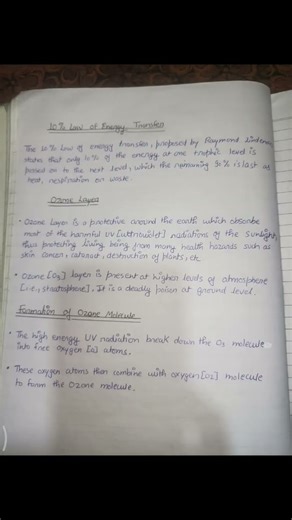 10% Law of Energy Transfer
The 10% Law of energy transfer, proposed by Raymond Lindeman
states that only 10% of the energy at one trophic level is
passed on to the next level, which the remaining 90% is lost as
heat, respiration or waste.
Ozone Layer
• Ozone layer is a protective around the earth which absorbs
most of the harmful UV [ultraviolet] radiations of the sunlight,
thus protecting living being from many health hazards such as
skin cancer, cataract, destruction of plants, etc.
• Ozone [O3] layer is present at higher leads of atmosphere
[i.e., stratosphere]. It is a deadly poison at ground level.
Formation of Ozone Molecule
• The high energy UV radiation break down the O2 molecule
into free oxygen [O] atoms.
• These oxygen atoms then combine with oxygen [O2] molecule
to form the Ozone molecule.